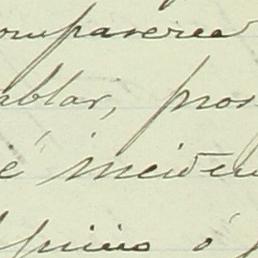 omparerea
ablar, pros
é inciden
juicio ó